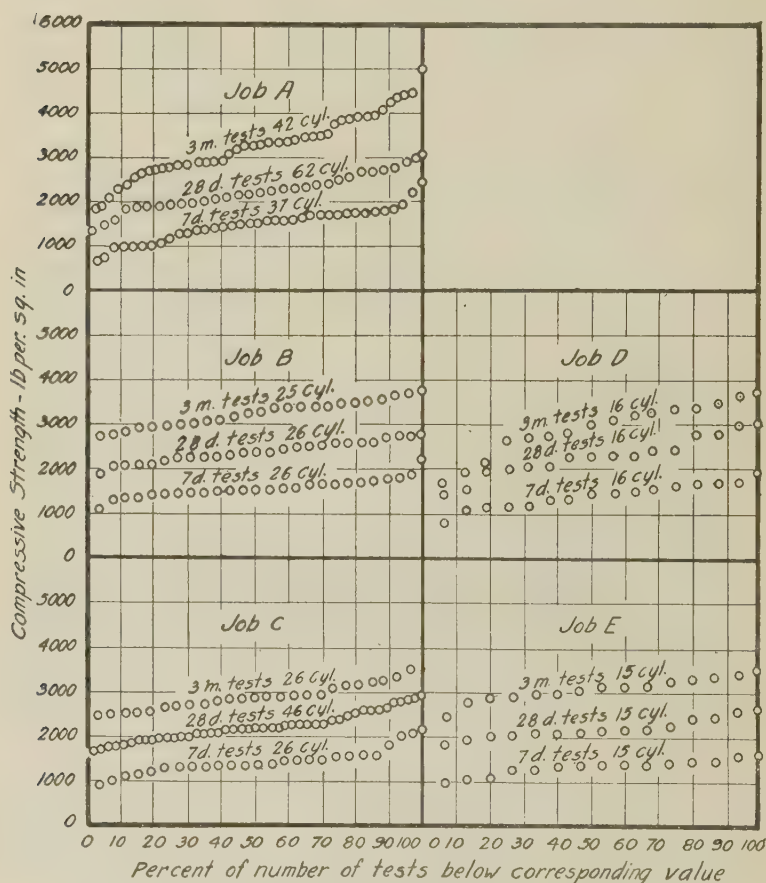 6000
5000
4000
3000
2000
1000
0
Job A
3 m. tests 42 cyl.
28 d. tests 62 cyl.
7 d. tests 37 cyl.
5000
4000
3000
2000
1000
0
Job B
3 m. tests 25 Cyl.
28 d. tests 26 Cyl.
7 d. tests 26 Cyl.
Job D
3 m. tests 16 cyl.
28 d. tests 16 cyl.
7 d. tests 16 cyl.
5000
4000
3000
2000
1000
0
Job C
3 m. tests 26 cyl.
28 d. tests 46 cyl.
7 d. tests 26 cyl.
Job E
3 m. tests 15 cyl.
28 d. tests 15 cyl.
7 d. tests 15 cyl.
Compressive Strength - lb per. sq. in
0 10 20 30 40 50 60 70 80 90 100 0 10 20 30 40 50 60 70 80 90 100
Percent of number of tests below corresponding value